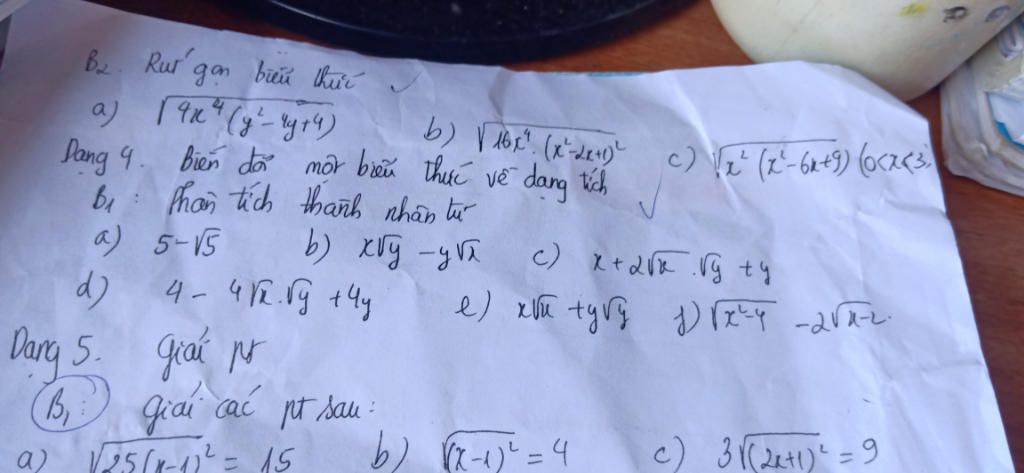 B₂. Rút gọn biểu thức ✓
a) √(4x⁴(y²-4y+4)) b) √(16x⁴.(x²-2x+1)²) c) √(x²(x²-6x+9)) (0<x<3)
Dạng 4. Biến đổi một biểu thức về dạng tích
B₁: Phân tích thành nhân tử ✓
a) 5-√5 b) x√y -y√x c) x+2√x.√y +y
d) 4- 4√x.√y +4y e) x√x +y√y f) √(x²-4) -2√(x-2).
Dạng 5. Giải pt
B₁: Giải các pt sau:
a) √(25(x-1)²) = 15 b) √((x-1)²) = 4 c) 3√((2x+1)²) = 9